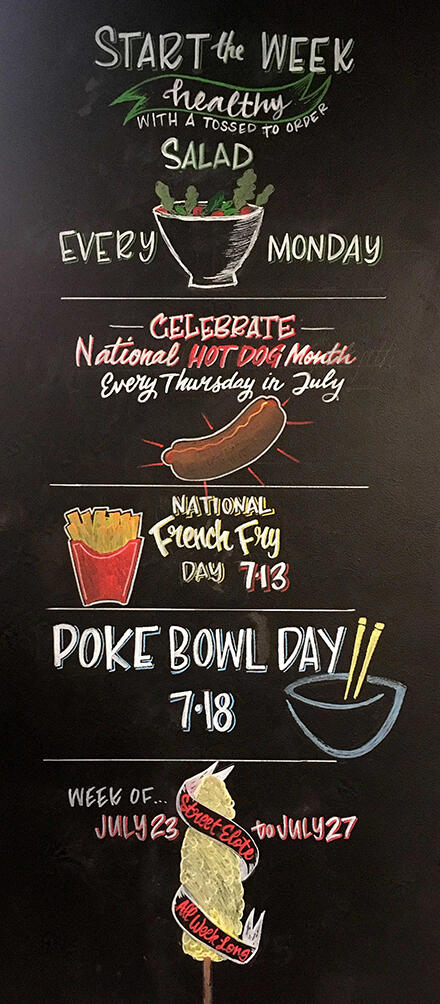 START the WEEK
healthy
WITH A TOSSED TO ORDER
SALAD
EVERY MONDAY
CELEBRATE
National HOT DOG Month
Every Thursday in July
NATIONAL
French Fry
DAY 7·13
POKE BOWL DAY
7·18
WEEK OF...
JULY 23 to JULY 27
Street Elote
All Week Long